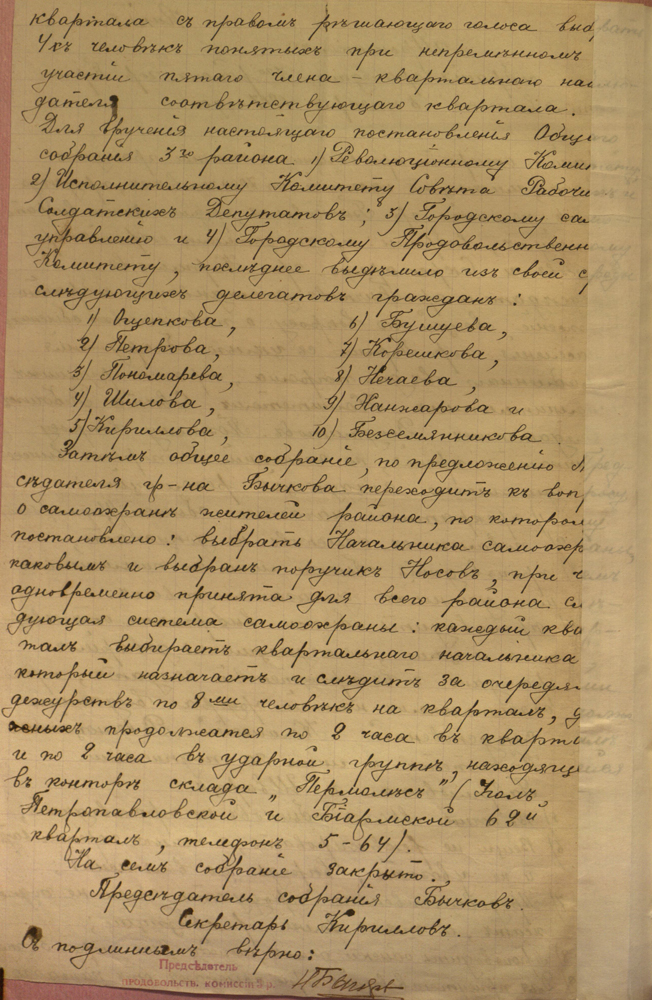 квартала съ правомъ рѣшающаго голоса выб
4хъ человѣкъ понятыхъ при непремѣнномъ
участіи пятаго члена – квартальнаго на
дателя соотвѣтствующаго квартала.
Для врученія настоящаго постановленія Общ
собранія 3го района 1) Революціонному Коми
2) Исполнительному Комитету Совѣта Рабочи
Солдатскихъ Депутатовъ; 3) Городскому са
управленію и 4) Городскому Продовольственн
Комитету, послѣднее выдѣлило изъ своей с
слѣдующихъ делегатовъ гражданъ:
1) Ощепкова, 6) Бушуева,
2) Петрова, 7) Корешкова,
3) Пономарева, 8) Нечаева,
4) Шилова, 9) Ханжарова и
5) Кириллова, 10) Безсемянникова.
Затѣмъ общее собраніе, по предложенію
сѣдателя гр-на Бычкова переходитъ къ вопр
о самоохранѣ жителей района, по котором
постановлено: выбрать Начальника самоохр
каковымъ и выбранъ поручикъ Носовъ, при
одновременно принята для всего района сл
дующая система самоохраны: каждый ква
талъ выбираетъ квартальнаго начальника
который назначаетъ и слѣдитъ за очередями
дежурствъ по 8ми человѣкъ на кварталъ,
продолжатся по 2 часа въ кварт
и по 2 часа въ ударной группѣ, находящ
въ конторѣ склада „Пермолѣсъ" (Уголъ
Петропавловской и Біармской 62й
кварталъ, телефонъ 5-64).
На семъ собраніе закрыто.
Предсѣдатель собранія Бычковъ.
Секретарь Кирилловъ.
Съ подлиннымъ вѣрно:
Предсѣдатель
продовольств. комиссіи 3 р.